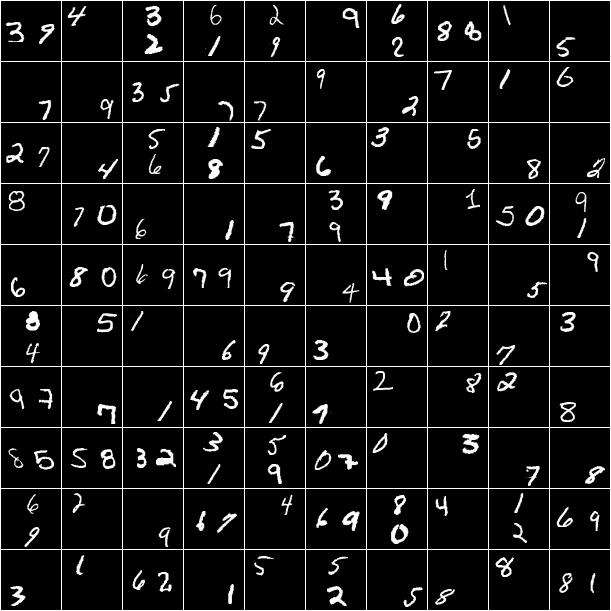 39 4 32 61 29 9 62 88 1 5
7 9 35 7 7 9 2 7 1 6
27 4 56 18 5 6 3 5 8 2
8 70 6 1 7 39 9 1 50 91
6 80 69 79 9 4 40 1 5 9
84 5 1 6 9 3 0 2 7 3
97 7 1 45 61 2 8 2 8
85 58 32 31 59 07 0 3 7 8
69 2 9 67 4 69 80 4 12 69
3 1 62 1 5 52 5 8 8 81